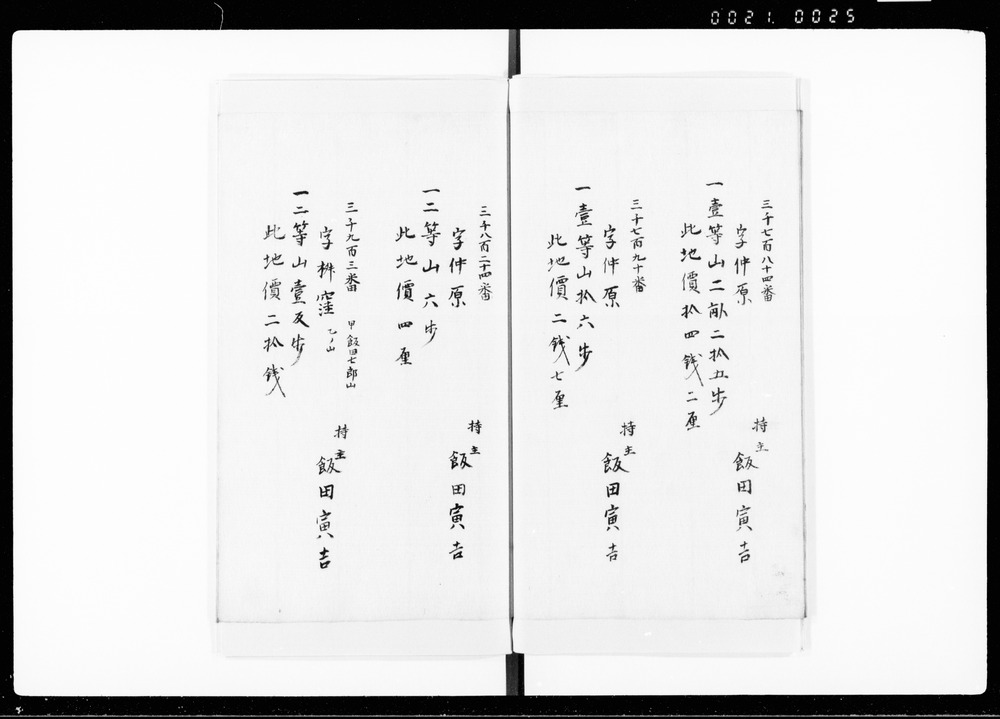 0021. 0025
三千七百八十四番
字仲原
一壹等山二畝二拾五歩
此地價拾四銭二厘
持主
飯田寅吉
三千七百九十番
字仲原
一壹等山拾六歩
此地價二銭七厘
持主
飯田寅吉
三千八百二十四番
字仲原
一二等山六歩
此地價四厘
持主
飯田寅吉
三千九百三番
甲飯田七郎山
字桝窪
乙ノ山
一二等山壹反歩
此地價二拾銭
持主
飯田寅吉